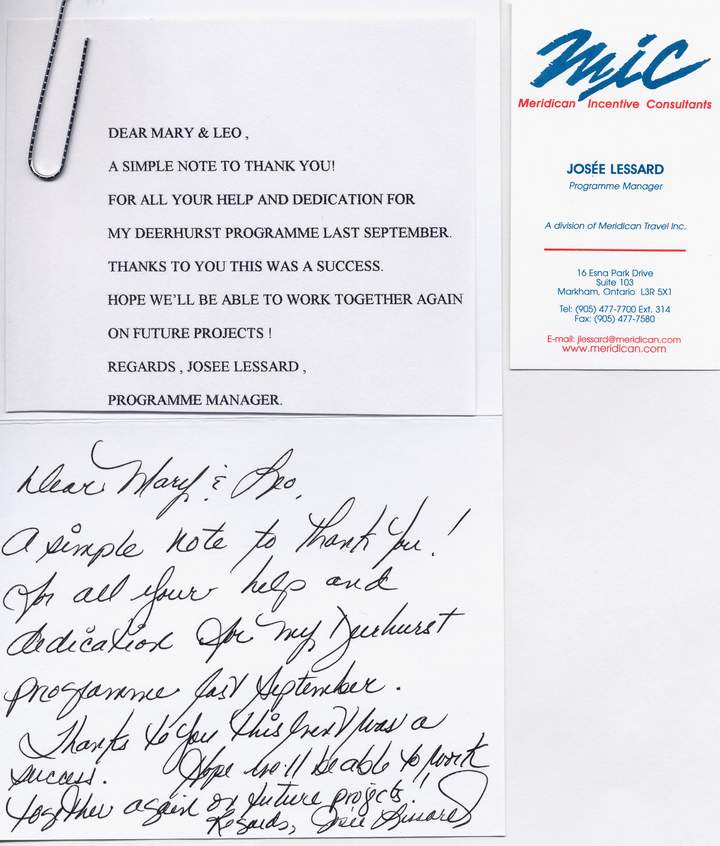 DEAR MARY & LEO ,
A SIMPLE NOTE TO THANK YOU!
FOR ALL YOUR HELP AND DEDICATION FOR
MY DEERHURST PROGRAMME LAST SEPTEMBER.
THANKS TO YOU THIS WAS A SUCCESS.
HOPE WE'LL BE ABLE TO WORK TOGETHER AGAIN
ON FUTURE PROJECTS !
REGARDS , JOSEE LESSARD ,
PROGRAMME MANAGER.
MIC
Meridican Incentive Consultants
JOSÉE LESSARD
Programme Manager
A division of Meridican Travel Inc.
16 Esna Park Drive
Suite 103
Markham, Ontario L3R 5X1
Tel: (905) 477-7700 Ext. 314
Fax: (905) 477-7580
E-mail: jlessard@meridican.com
www.meridican.com
Dear Mary & Leo,
A simple note to thank you!
for all your help and
dedication for my Deerhurst
programme last September.
Thanks to you this event was a
success. Hope we'll be able to work
together again on future projects!
Regards, Josée Lessard